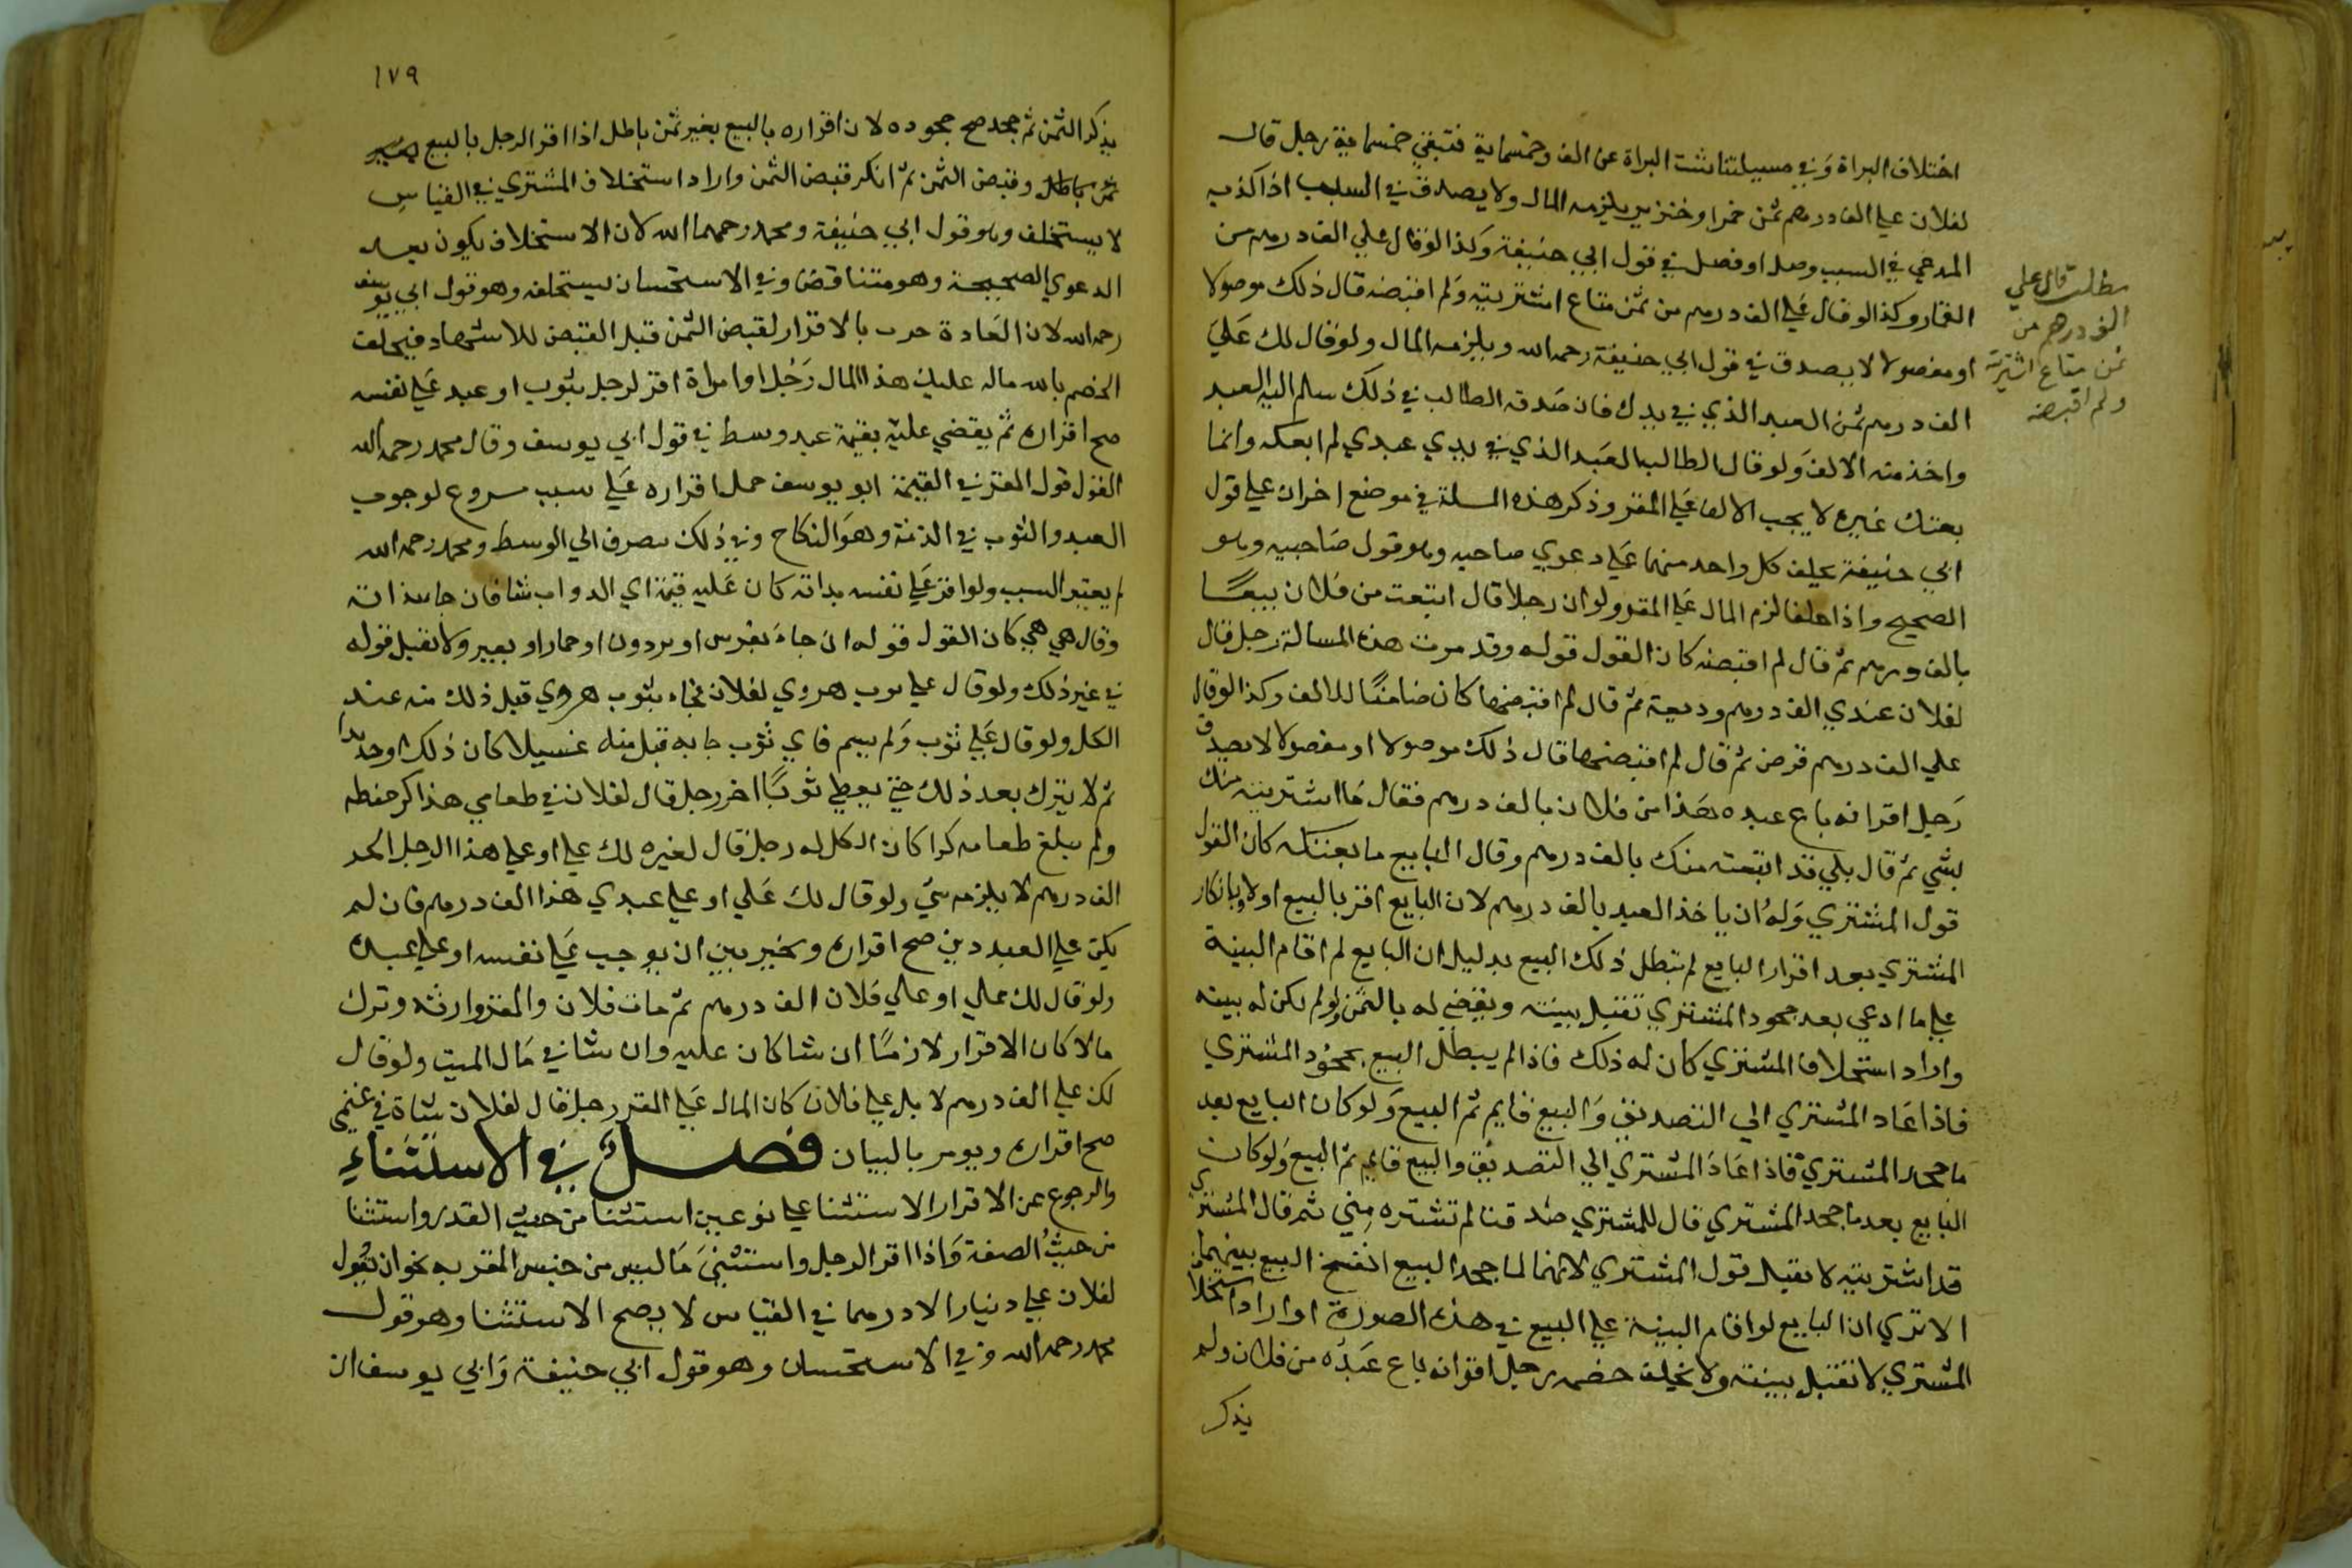 اختلاف البراة وفي مسيلتنا تثت البراة عن الف وخمسماية فتبقي خمسماية رجل قال
لفلان علي الف درهم ثمن خمر او خنزير يلزمه المال ولا يصدق في السبب اذا كذبه
المدعي في السبب وصل او فصل في قول ابي حنيفة وكذا لو قال علي الف درهم من
القمار وكذا لو قال علي الف درهم من ثمن متاع اشتريته ولم اقبضه قال ذلك موصولا
او مفصولا لا يصدق في قول ابي حنيفة رحمه الله ويلزمه المال ولو قال لك علي
الف درهم ثمن العبد الذي في يدك فان صدقه الطالب في ذلك سلم اليه العبد
واخذ منه الالف ولو قال الطالب العبد الذي في يدي عبدي لم ابعكه وانما
بعتك غيره لا يجب الالف علي المقر وذكر هذه المسلة في موضع اخر ان علي قول
ابي حنيفة يحلف كل واحد منهما علي دعوي صاحبه وهو قول صاحبيه وهو
الصحيح واذا حلفا لزم المال علي المقر ولو ان رجلا قال ابتعت من فلان بيعا
بالف درهم ثم قال لم اقبضه كان القول قوله وقد مرت هذه المسالة رجل قال
لفلان عندي الف درهم وديعة ثم قال لم اقبضها كان ضامنا للالف وكذا لو قال
علي الف درهم قرض ثم قال لم اقبضها قال ذلك موصولا او مفصولا لا يصدق
رجل اقر انه باع عبده هذا من فلان بالف درهم فقال ما اشتريته منك
بشي ثم قال بلي قد ابتعته منك بالف درهم وقال البايع ما بعتكه كان القول
قول المشتري وله ان ياخذ العبد بالف درهم لان البايع اقر بالبيع اولا وبانكار
المشتري بعد اقرار البايع لم يبطل ذلك البيع بدليل ان البايع لم اقام البينة
علي ما ادعي بعد جحود المشتري تقبل بينته ويقضي له بالثمن ولو لم يكن له بينه
واراد استحلاف المشتري كان له ذلك فاذا لم يبطل البيع بجحود المشتري
فاذا عاد المشتري الي التصديق والبيع قايم تم البيع ولو كان البايع بعد
ما جحد المشتري فاذا عاد المشتري الي التصديق والبيع قايم تم البيع ولو كان
البايع بعد ما جحد المشتري قال للمشتري صدقت لم تشتره مني ثم قال المشتري
قد اشتريته لا يقبل قول المشتري لانهما لما جحد البيع انفسخ البيع بينهما
الا تري ان البايع لو اقام البينة علي البيع في هذه الصورة او اراد استحلاف
المشتري لا تقبل بينته ولا يحلف خصمه رجل اقر انه باع عبده من فلان ولم
يذكر
مطلب قال علي
الف درهم من
ثمن متاع اشتريته
ولم اقبضه
١٧٩
يذكر الثمن ثم جحد صح جحوده لان اقراره بالبيع بغير ثمن باطل اذا اقر الرجل بالبيع
وقبض الثمن ثم انكر قبض الثمن واراد استحلاف المشتري في القياس
لا يستحلف وهو قول ابي حنيفة ومحمد رحمهما الله لان الاستحلاف يكون بعد
الدعوي الصحيحة وهو متناقض وفي الاستحسان يستحلف وهو قول ابي يوسف
رحمه الله لان العادة جرت بالاقرار لقبض الثمن قبل القبض للاشهاد فيحلف
الخصم بالله ماله عليك هذا المال رجل او امراة اقر لرجل بثوب او عبد علي نفسه
صح اقراره ثم يقضي عليه بقيمة عبد وسط في قول ابي يوسف وقال محمد رحمه الله
القول قول المقر في القيمة ابو يوسف حمل اقراره علي سبب مشروع لوجوب
العبد والثوب في الذمة وهو النكاح وفي ذلك يصرف الي الوسط ومحمد رحمه الله
لم يعتبر السبب ولو اقر علي نفسه بدابة كان عليه قيمة اي الدواب شا فان جا بدابة
وقال هي هي كان القول قوله ان جاء بفرس او بردون او حمار او بعير ولا يقبل قوله
في غير ذلك ولو قال علي ثوب هروي لفلان فجاء بثوب هروي قبل ذلك منه عند
الكل ولو قال علي ثوب ولم يسم فاي ثوب جا به قبل منه غسيلا كان ذلك او جديدا
ثم لا يترك بعد ذلك حتي يعطي ثوبا اخر رجل قال لفلان في طعامي هذا كر حنطه
ولم يبلغ طعامه كرا كان الكل له رجل قال لغيره لك علي او علي هذا الرجل الحر
الف درهم لا يلزمه شي ولو قال لك علي او علي عبدي هذا الف درهم فان لم
يكن علي العبد دين صح اقراره ويخير بين ان يوجب علي نفسه او علي عبده
ولو قال لك علي او علي فلان الف درهم ثم مات فلان والمقر وارثه وترك
مالا كان الاقرار لازما ان شا كان عليه وان شا في مال الميت ولو قال
لك علي الف درهم لا بل علي فلان كان المال علي المقر رجل قال لفلان شاة في غنمي
صح اقراره ويومر بالبيان فصل في الاستثناء
والرجوع عن الاقرار الاستثنا علي نوعين استثنا من حيث القدر واستثنا
من حيث الصفة واذا اقر الرجل واستثني ما ليس من جنس المقر به نحو ان يقول
لفلان علي دينار الا درهما في القياس لا يصح الاستثنا وهو قول
محمد رحمه الله وفي الاستحسان وهو قول ابي حنيفة وابي يوسف ان